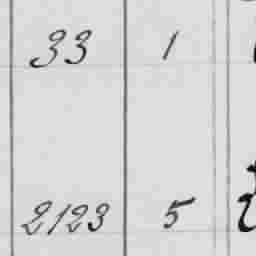 33 1
2123 5